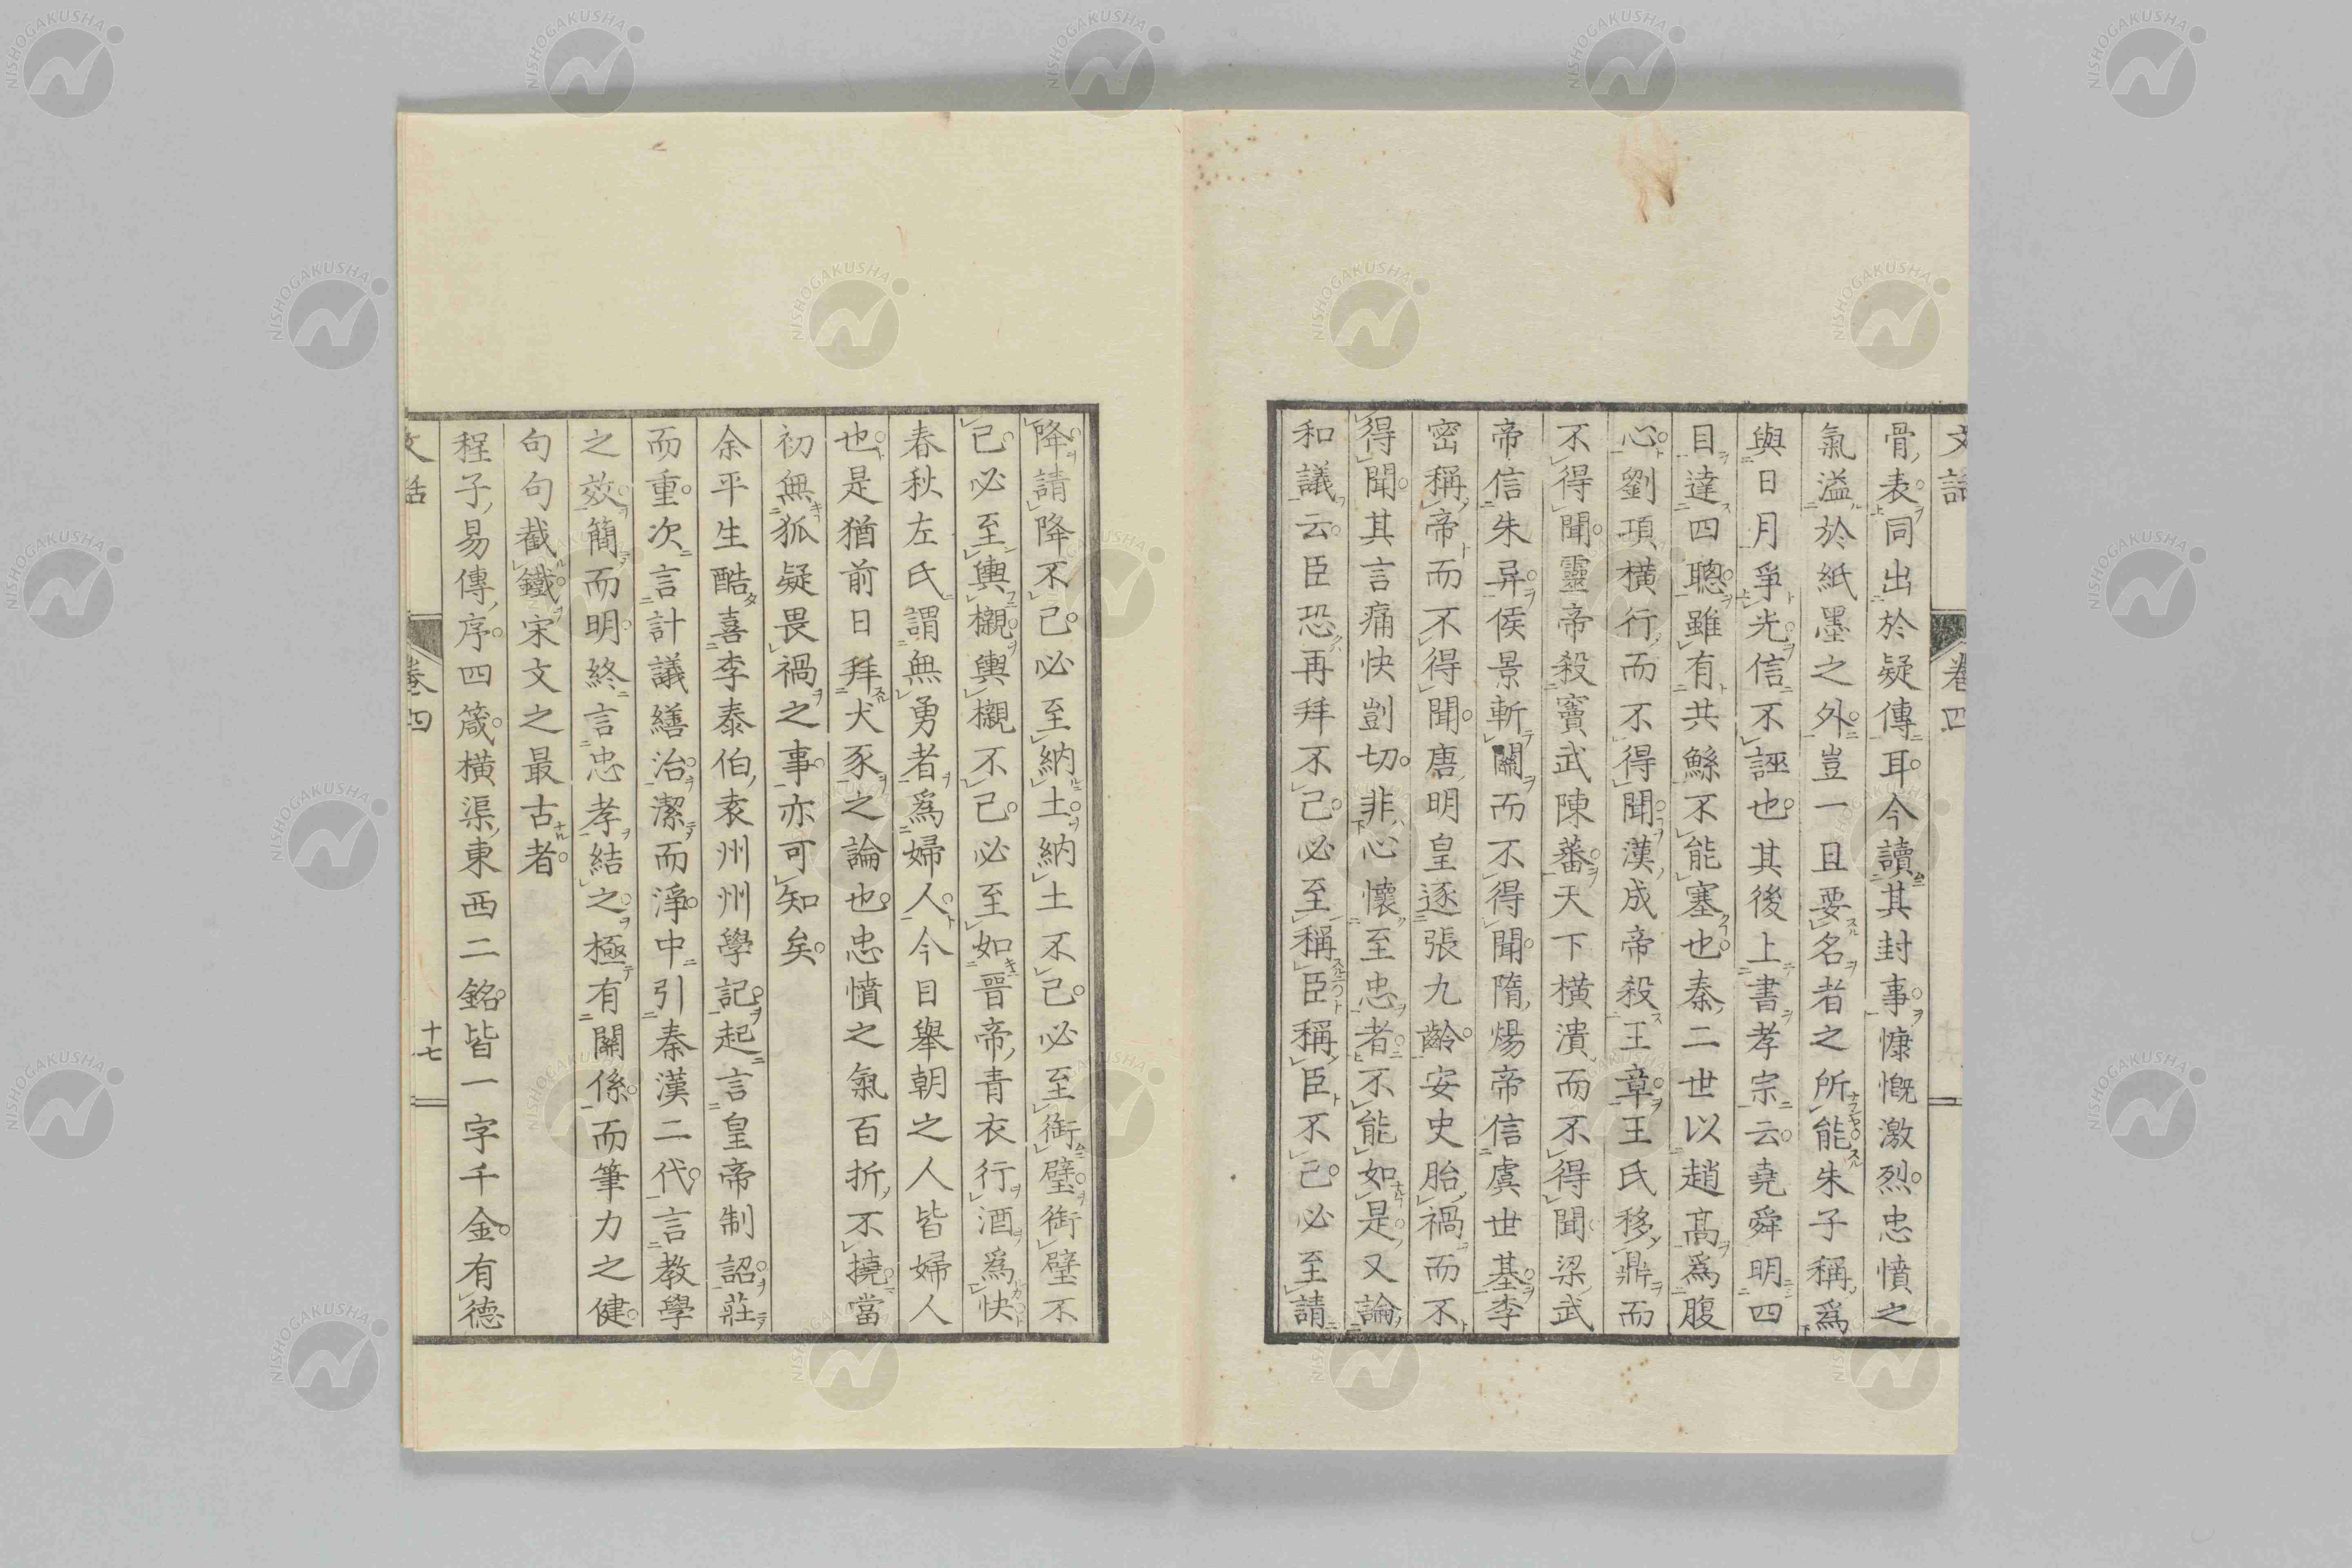 骨表同出於疑傳耳今讀其封事慷慨激烈忠憤之
氣溢於紙墨之外豈一且要名者之所能朱子稱爲
與日月爭光信不誣也其後上書孝宗云堯舜明四
目達四聰雖有共鯀不能塞也秦二世以趙高爲腹
心劉項横行而不得聞漢成帝殺王章王氏移鼎而
不得聞靈帝殺竇武陳蕃天下横潰而不得聞梁武
帝信朱异侯景斬關而不得聞隋煬帝信虞世基李
密稱帝而不得聞唐明皇逐張九齡安史胎禍而不
得聞其言痛快剴切非心懷至忠者不能如是又論
和議云臣恐再拜不已必至稱臣稱臣不已必至請
降請降不已必至納土納土不已必至銜璧銜璧不
已必至輿櫬輿櫬不已必至如晉帝青衣行酒爲快
春秋左氏謂無勇者爲婦人今日舉朝之人皆婦人
也是猶前日拜犬豕之論也忠憤之氣百折不撓當
初無狐疑畏禍之事亦可知矣
余平生酷喜李泰伯袁州州學記起言皇帝制詔莊
而重次言計議繕治潔而淨中引秦漢二代言教學
之效簡而明終言忠孝結之極有關係而筆力之健
句句截鐵宋文之最古者
程子易傳序四箴横渠東西二銘皆一字千金有德
文話 卷四 十七
NISHOGAKUSHA